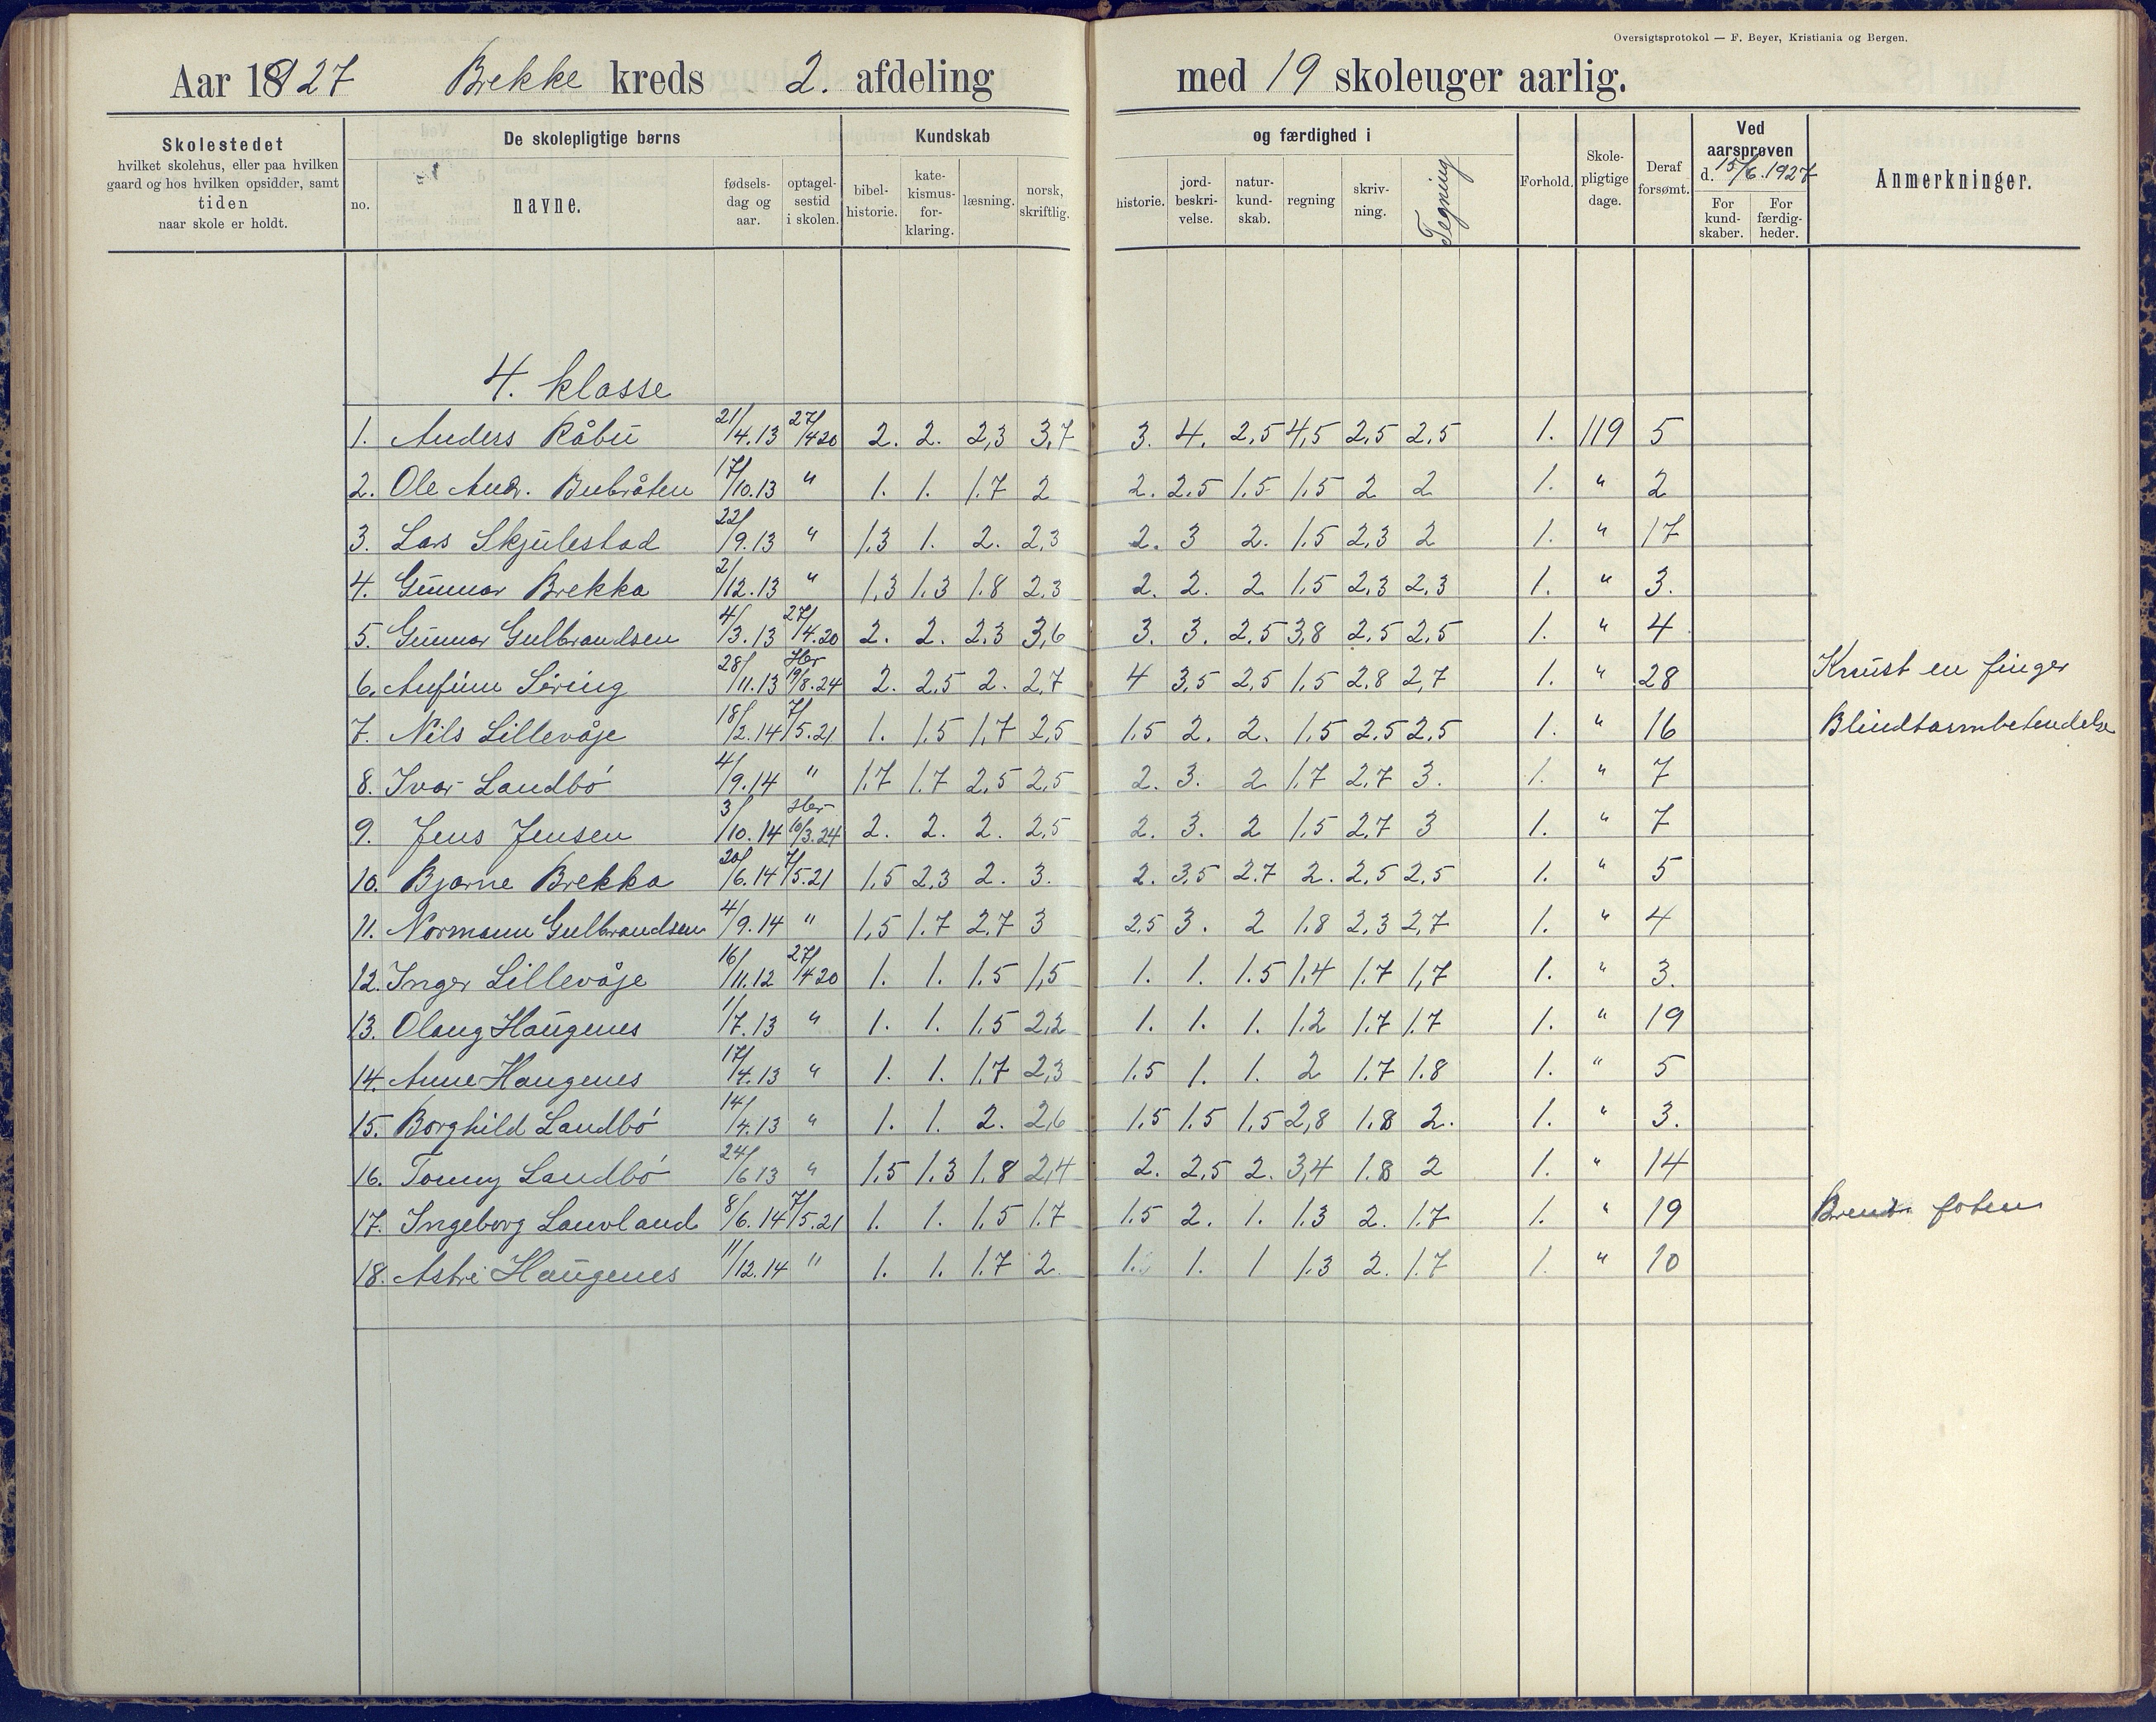 Oversigtsprotokol — F. Beyer, Kristiania og Bergen.
Aar 1927 Brekke kreds 2. afdeling med 19 skoleuger aarlig.
Skolestedet
hvilket skolehus, eller paa hvilken
gaard og hos hvilken opsidder, samt
tiden
naar skole er holdt.
De skolepligtige børns
no.
navne.
fødsels-
dag og
aar.
optagel-
sestid
i skolen.
Kundskab
bibel-
historie.
kate-
kismus-
for-
klaring.
læsning.
norsk,
skriftlig.
og færdighed i
historie.
jord-
beskri-
velse.
natur-
kund-
skab.
regning
skriv-
ning.
Tegning
Forhold.
Skole-
pligtige
dage.
Deraf
forsømt.
Ved
aarsprøven
d. 15/6. 1927
For
kund-
skaber.
For
færdig-
heder.
Anmerkninger.
4. klasse
1. Anders Råbu 21/4.13 27/4 20 2. 2. 2,3 3,7 3. 4. 2,5 4,5 2,5 2,5 1. 119 5
2. Ole Andr. Bubråten 17/10.13 " 1. 1. 1.7 2 2. 2.5 1.5 1.5 2 2 1. " 2
3. Lars Skjulestad 22/9.13 " 1,3 1. 2. 2,3 2. 3 2. 1.5 2,3 2 1. " 17
4. Gunnar Brekka 2/12.13 " 1,3 1.3 1.8 2,3 2. 2. 2 1.5 2,3 2,3 1. " 3.
5. Gunnar Gulbrandsen 4/3.13 27/4.20 2. 2. 2.3 3,6 3. 3. 2,5 3,8 2,5 2,5 1. " 4
6. Anfinn Sering 28/11.13 Her 19/8.24 2. 2,5 2. 2,7 4 3,5 2,5 1.5 2.8 2,7 1. " 28 Knust en finger
7. Nils Lillevåje 18/2.14 7/5.21 1. 1,5 1,7 2,5 1.5 2. 2. 1.5 2.5 2.5 1. " 16 Blindtarmbetendelse
8. Ivar Landbö 4/9.14 " 1.7 1.7 2,5 2,5 2. 3. 2 1.7 2.7 3. 1. " 7
9. Jens Jensen 3/10.14 Her 10/3.24 2. 2. 2. 2,5 2. 3. 2 1.5 2,7 3 1. " 7
10. Bjarne Brekka 20/6.14 7/5.21 1,5 2,3 2. 3. 2. 3,5 2.7 2. 2,5 2,5 1. " 5
11. Normann Gulbrandsen 4/9.14 " 1,5 1.7 2,7 3 2,5 3. 2 1.8 2,3 2,7 1. " 4
12. Inger Lillevåje 16/11.12 27/4 20 1. 1. 1.5 1,5 1. 1. 1.5 1.4 1.7 1,7 1. " 3.
13. Olaug Haugenes 1/7.13 " 1. 1. 1.5 2,2 1. 1. 1. 1.2 1.7 1.7 1. " 19
14. Anne Haugenes 17/4.13 " 1. 1. 1.7 2,3 1.5 1. 1. 2 1.7 1.8 1. " 5
15. Borghild Landbö 14/4.13 " 1. 1. 2. 2,6 1.5 1.5 1.5 2,8 1.8 2. 1. " 3.
16. Tonny Landbö 24/6 13 " 1.5 1.3 1.8 2,4 2. 2,5 2. 3,4 1.8 2 1. " 14
17. Ingeborg Lauvland 8/6.14 7/5.21 1. 1. 1.5 1.7 1.5 2. 1. 1.3 2. 1.7 1. " 19 Brendt foten
18. Astri Haugenes 11/12.14 " 1. 1. 1.7 2. 1. 1. 1 1.3 2. 1.7 1. " 10